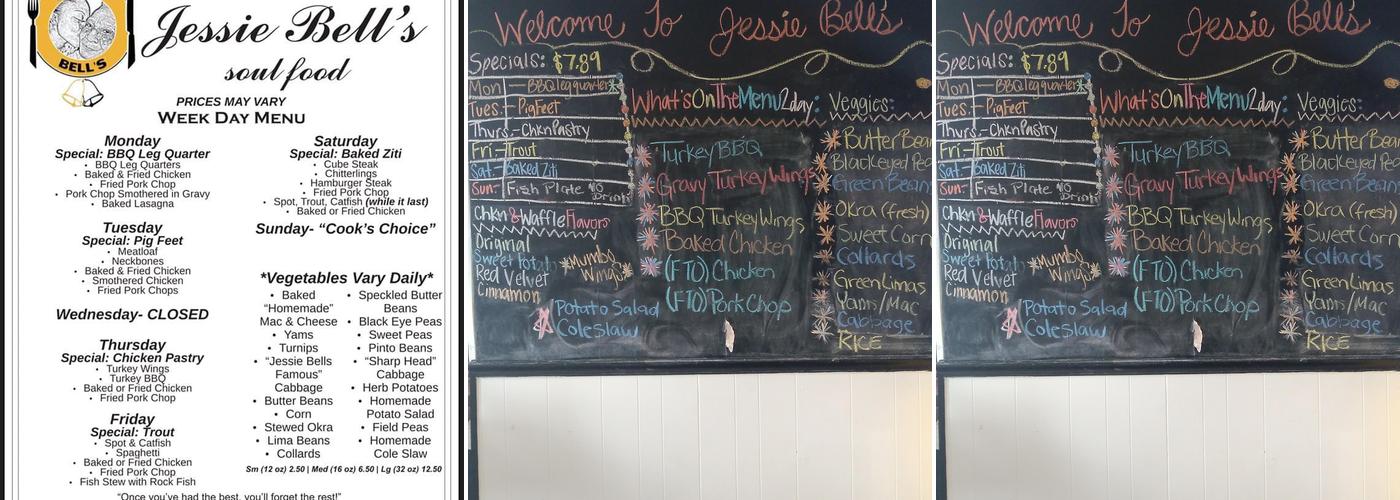 BELL'S
Jessie Bell's
soul food
PRICES MAY VARY
WEEK DAY MENU
Monday
Special: BBQ Leg Quarter
• BBQ Leg Quarters
• Baked & Fried Chicken
• Fried Pork Chop
• Pork Chop Smothered in Gravy
• Baked Lasagna
Tuesday
Special: Pig Feet
• Meatloaf
• Neckbones
• Baked & Fried Chicken
• Smothered Chicken
• Fried Pork Chops
Wednesday- CLOSED
Thursday
Special: Chicken Pastry
• Turkey Wings
• Turkey BBQ
• Baked or Fried Chicken
• Fried Pork Chop
Friday
Special: Trout
• Spot & Catfish
• Spaghetti
• Baked or Fried Chicken
• Fried Pork Chop
• Fish Stew with Rock Fish
Saturday
Special: Baked Ziti
• Cube Steak
• Chitterlings
• Hamburger Steak
• Fried Pork Chop
• Spot, Trout, Catfish (while it last)
• Baked or Fried Chicken
Sunday- “Cook’s Choice”
*Vegetables Vary Daily*
• Baked
“Homemade”
Mac & Cheese
• Yams
• Turnips
• “Jessie Bells
Famous”
Cabbage
• Butter Beans
• Corn
• Stewed Okra
• Lima Beans
• Collards
• Speckled Butter
Beans
• Black Eye Peas
• Sweet Peas
• Pinto Beans
• “Sharp Head”
Cabbage
• Herb Potatoes
• Homemade
Potato Salad
• Field Peas
• Homemade
Cole Slaw
Sm (12 oz) 2.50 | Med (16 oz) 6.50 | Lg (32 oz) 12.50
“Once you’ve had the best, you’ll forget the rest!”
Welcome To Jessie Bell's
Specials: $7.89
Mon - BBQ leg quarter
Tues - Pig Feet
Thurs - Chkn Pastry
Fri - Trout
Sat - Baked Ziti
Sun - Fish Plate No
Drink
Chkn & Waffle Flavors
Original
Sweet Potato
Red Velvet
Cinnamon
Mumbo
Wings
Potato Salad
Coleslaw
What's On The Menu 2day:
Turkey BBQ
Gravy Turkey Wings
BBQ Turkey Wings
Baked Chicken
(FTO) Chicken
(FTO) Pork Chop
Veggies:
Butter Bean
Blackeyed Pe
Green Bean
Okra (fresh)
Sweet Corn
Collards
Green Limas
Yams/Mac
Cabbage
RICE
Welcome To Jessie Bell's
Specials: $7.89
Mon - BBQ leg quarter
Tues - Pig Feet
Thurs - Chkn Pastry
Fri - Trout
Sat - Baked Ziti
Sun - Fish Plate No
Drink
Chkn & Waffle Flavors
Original
Sweet Potato
Red Velvet
Cinnamon
Mumbo
Wings
Potato Salad
Coleslaw
What's On The Menu 2day:
Turkey BBQ
Gravy Turkey Wings
BBQ Turkey Wings
Baked Chicken
(FTO) Chicken
(FTO) Pork Chop
Veggies:
Butter Bean
Blackeyed Pe
Green Bean
Okra (fresh)
Sweet Corn
Collards
Green Limas
Yams/Mac
Cabbage
RICE